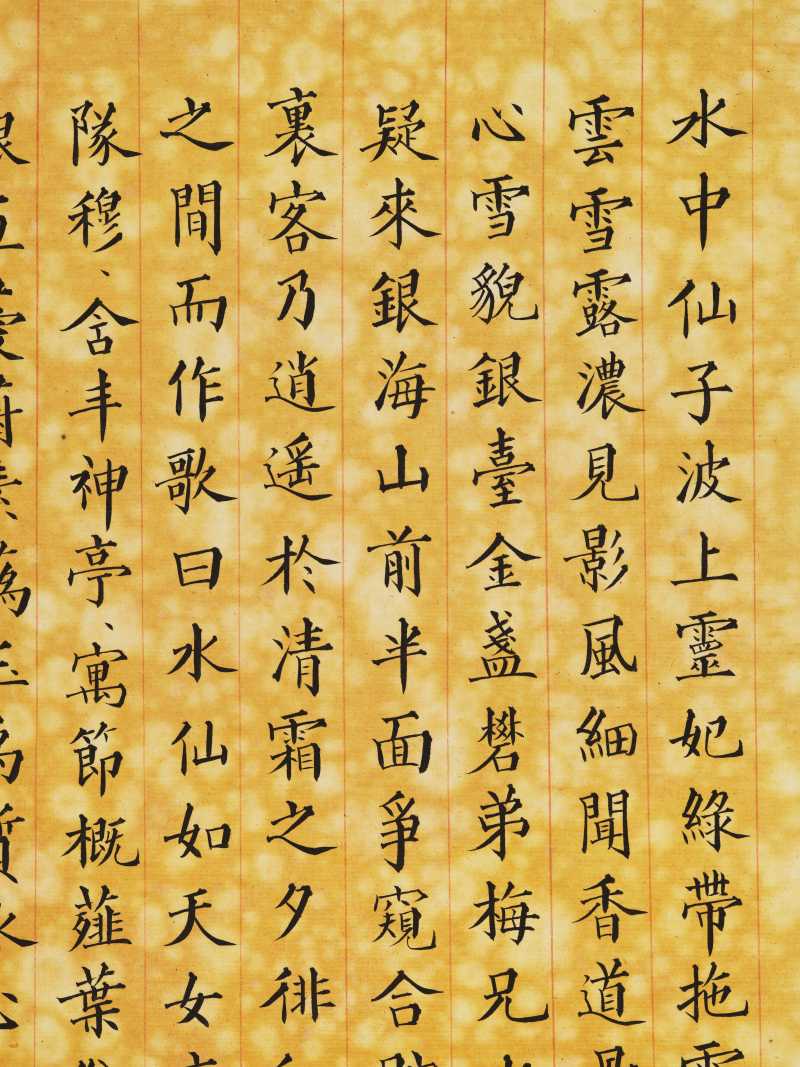 水中仙子波上靈妃綠帶拖
雲雪露濃見影風細聞香道
心雪貌銀臺金盞礬弟梅兄
疑來銀海山前半面爭窺合
裏客乃逍遥於清霜之夕徘
之間而作歌曰水仙如天女
隊穆、舍丰神亭、寓節概薤葉